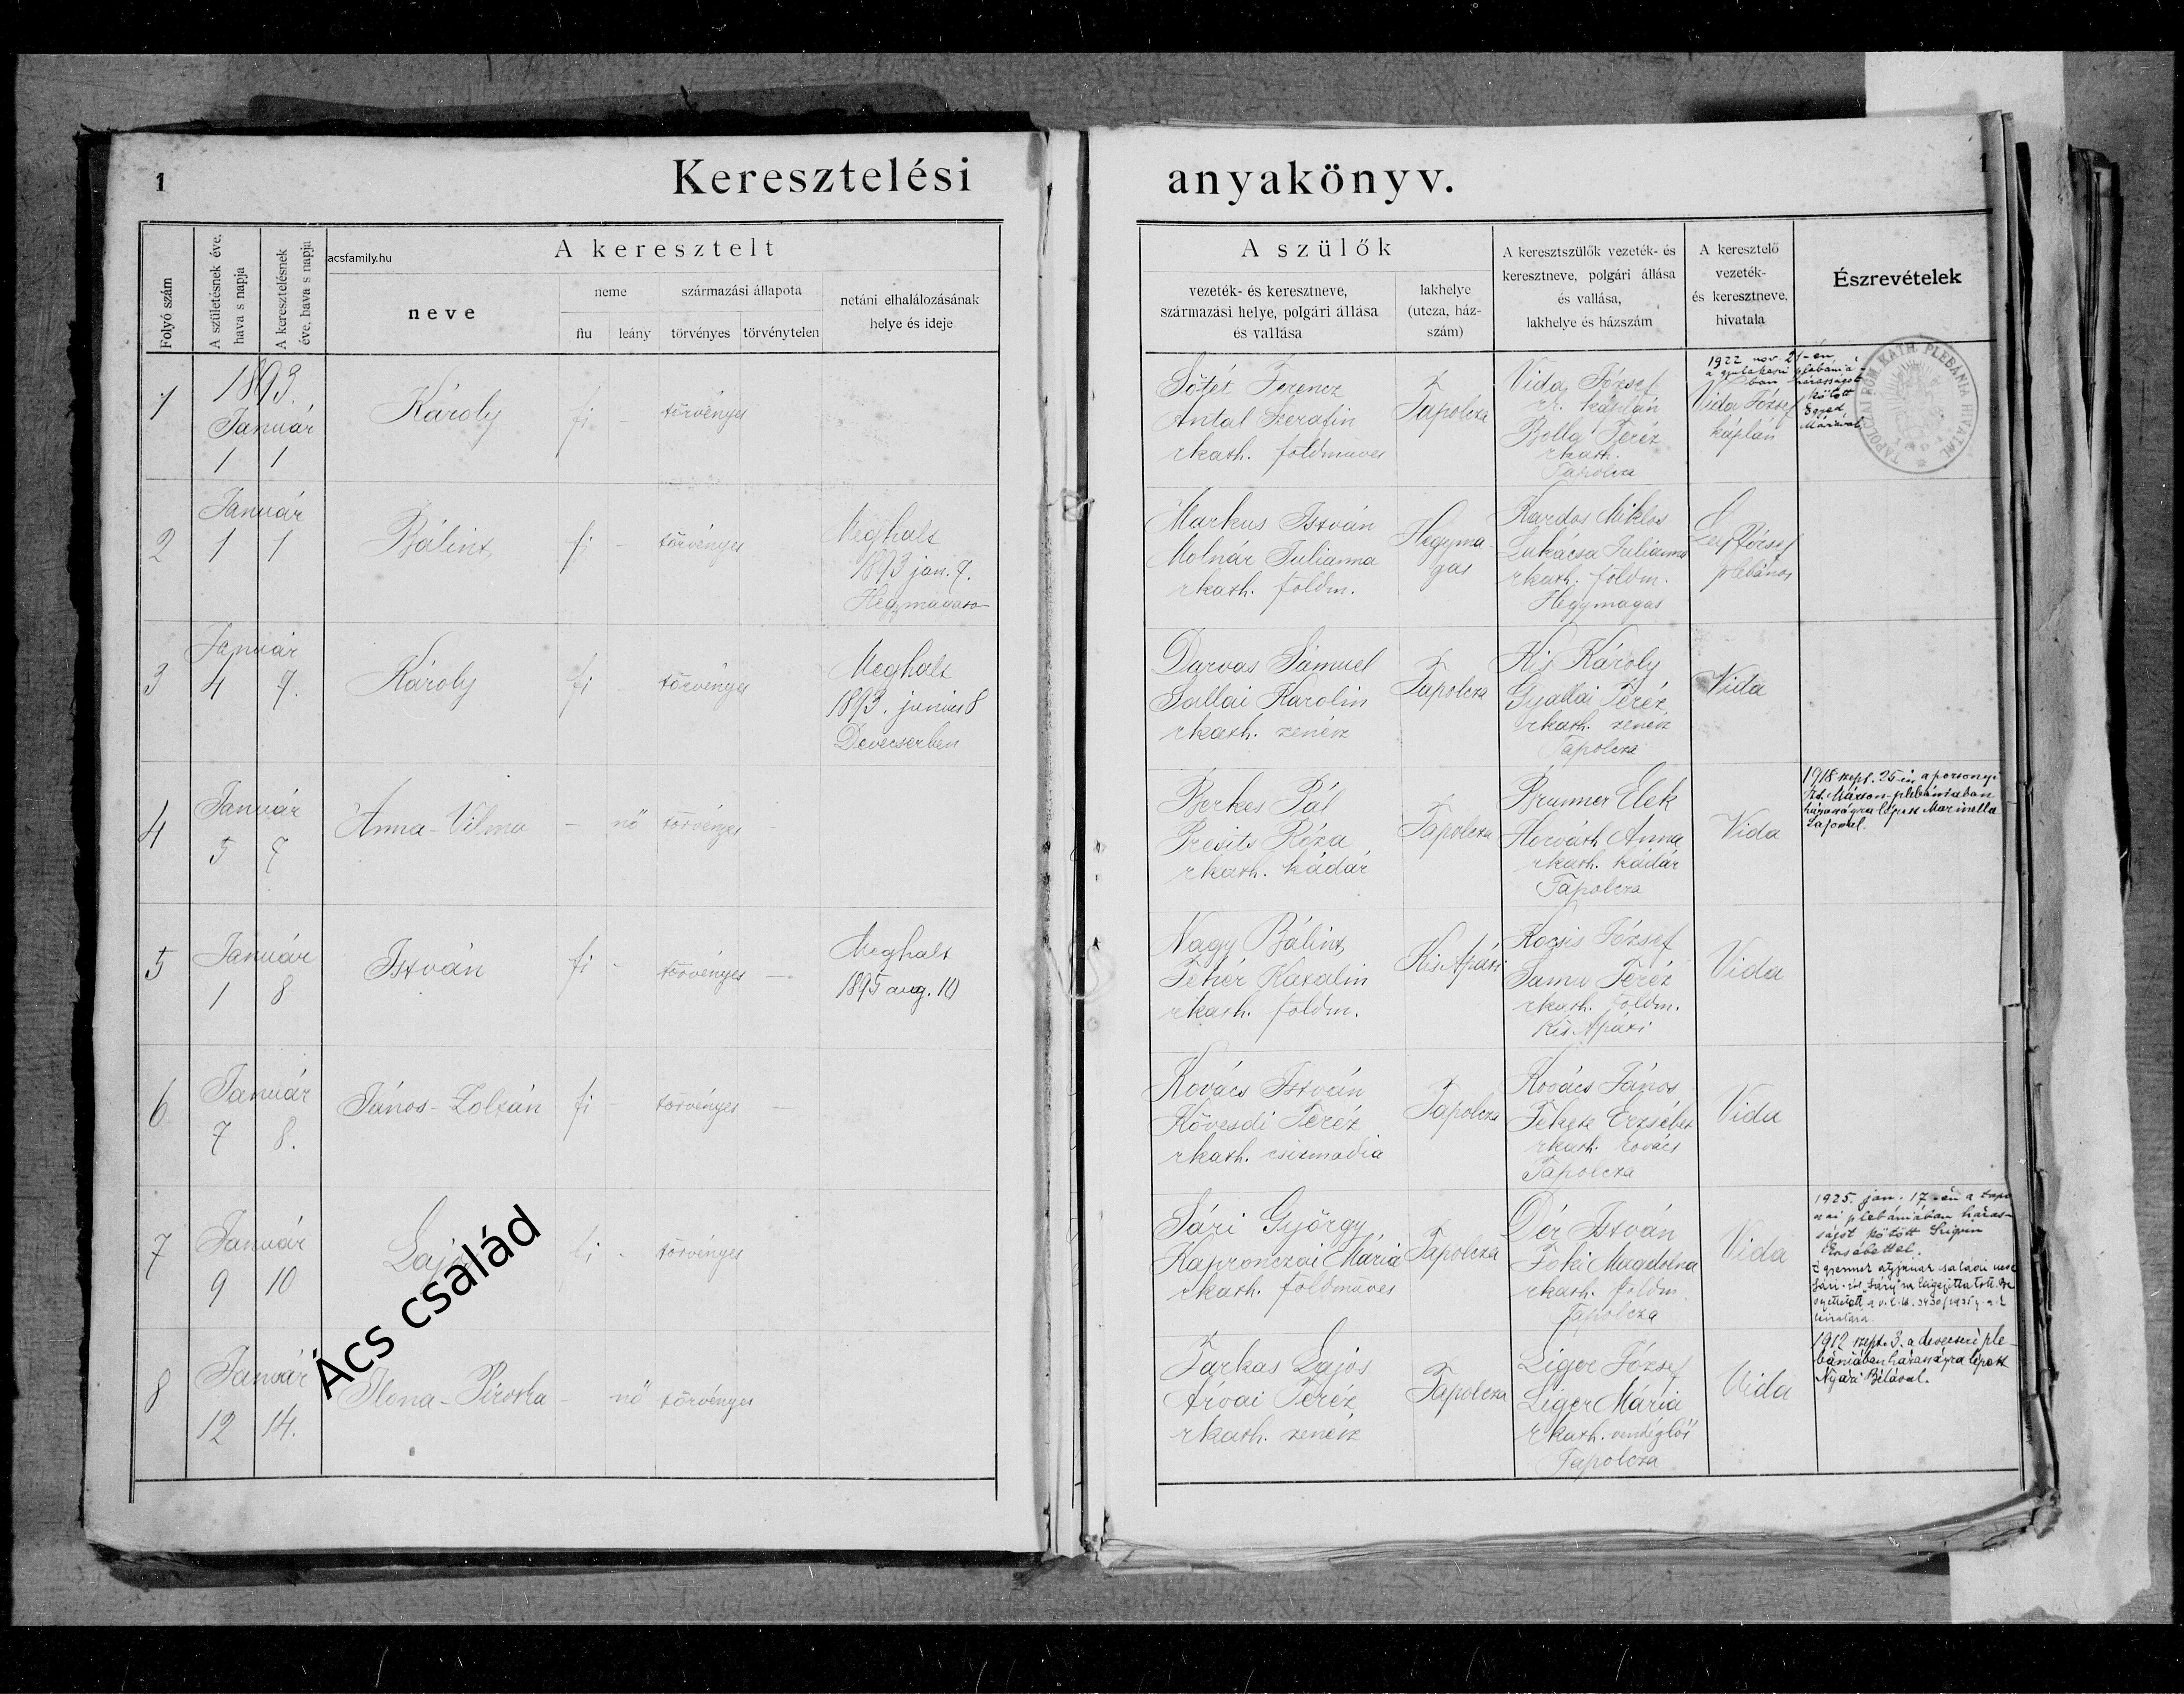 1
Keresztelési
anyakönyv.
1
Folyó szám
A születésnek éve,
hava s napja
A keresztelésnek
éve, hava s napja
acsfamily.hu
A keresztelt
neve
neme
fiu
leány
származási állapota
törvényes
törvénytelen
netáni elhalálozásának
helye és ideje
A szülők
vezeték- és keresztneve,
származási helye, polgári állása
és vallása
lakhelye
(utcza, ház-
szám)
A keresztszülők vezeték- és
keresztneve, polgári állása
és vallása,
lakhelye és házszám
A keresztelő
vezeték-
és keresztneve,
hivatala
Észrevételek
1
1893.
Január
1 1
Károly
fi -
törvényes
Sötét Ferencz
Antal Szerafin
rkath. földműves
Tapolcza
Vida József
r. káplán
Bolla Teréz
rkath.
Tapolcza
Vida József
káplán
1922 nov. 21-én
a gyulakeszi plebániá-
ban házasságot
kötött
Egyed
Máriával
TAPOLCZAI RÓM. KATH. PLEBÁNIA HIVATAL
2
Január
1 1
Bálint
fi -
törvényes
Meghalt
1893 jan. 7.
Hegymagason
Markus István
Molnár Julianna
rkath. földm.
Hegyma-
gas
Kardos Miklós
Lukácsa Julianna
rkath. földm.
Hegymagas
József
plébános
3
Január
4 7.
Károly
fi -
törvényes
Meghalt
1893. junius 8
Devecserben
Darvas Sámuel
Sallai Karolin
rkath. zenész
Tapolcza
Kis Károly
Gyallai Teréz
rkath. zenész
Tapolcza
Vida
4
Január
5 7
Anna-Vilma
- nő törvényes -
Berkes Pál
Presits Róza
rkath. kádár
Tapolcza
Brunner Elek
Horváth Anna
rkath. kádár
Tapolcza
Vida
1918 szept. 25-én a pozsonyi
Szt. Márton-plebániában
házasságra lépett Marinella
Lajossal.
5
Január
1 8
István
fi -
törvényes -
Meghalt
1895 aug. 10
Nagy Bálint
Fehér Katalin
rkath. földm.
Kis Apáti
Kocsis József
Samu Teréz
rkath. földm.
Kis Apáti
Vida
6
Január
7 8.
János-Zoltán
fi -
törvényes -
Kovács István
Kövesdi Teréz
rkath. csizmadia
Tapolcza
Kovács János
Fekete Erzsébet
rkath. kovács
Tapolcza
Vida
7
Január
9 10
Lajos
fi -
törvényes
Sári György
Kapronczai Mária
rkath. földműves
Tapolcza
Dér István
Foki Magdolna
rkath. földm.
Tapolcza
Vida
1925. jan. 17-én a tapol
czai plebániában házas-
ságot kötött Szigeti
Erzsébettel.
8
Január
12 14.
Ilona-Piroska
- nő törvényes
Farkas Lajos
Árvai Teréz
rkath. zenész
Tapolcza
Liger József
Liger Mária
rkath. vendéglős
Tapolcza
Vida
1912 szept. 3. a devecseri ple-
bániában házasságra lépett
Nyári Bélával.
Ács család